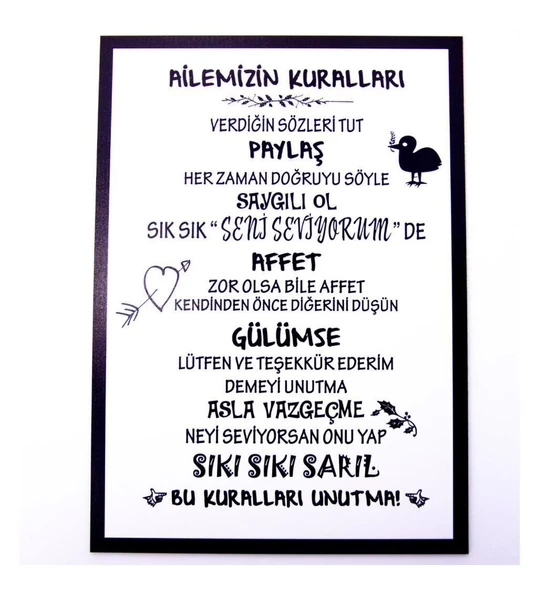 AİLEMİZİN KURALLARI
VERDİĞİN SÖZLERİ TUT
PAYLAŞ
HER ZAMAN DOĞRUYU SÖYLE
SAYGILI OL
SIK SIK “SENİ SEVİYORUM” DE
AFFET
ZOR OLSA BİLE AFFET
KENDİNDEN ÖNCE DİĞERİNİ DÜŞÜN
GÜLÜMSE
LÜTFEN VE TEŞEKKÜR EDERİM
DEMEYİ UNUTMA
ASLA VAZGEÇME
NEYİ SEVİYORSAN ONU YAP
SIKI SIKI SARIL
BU KURALLARI UNUTMA!